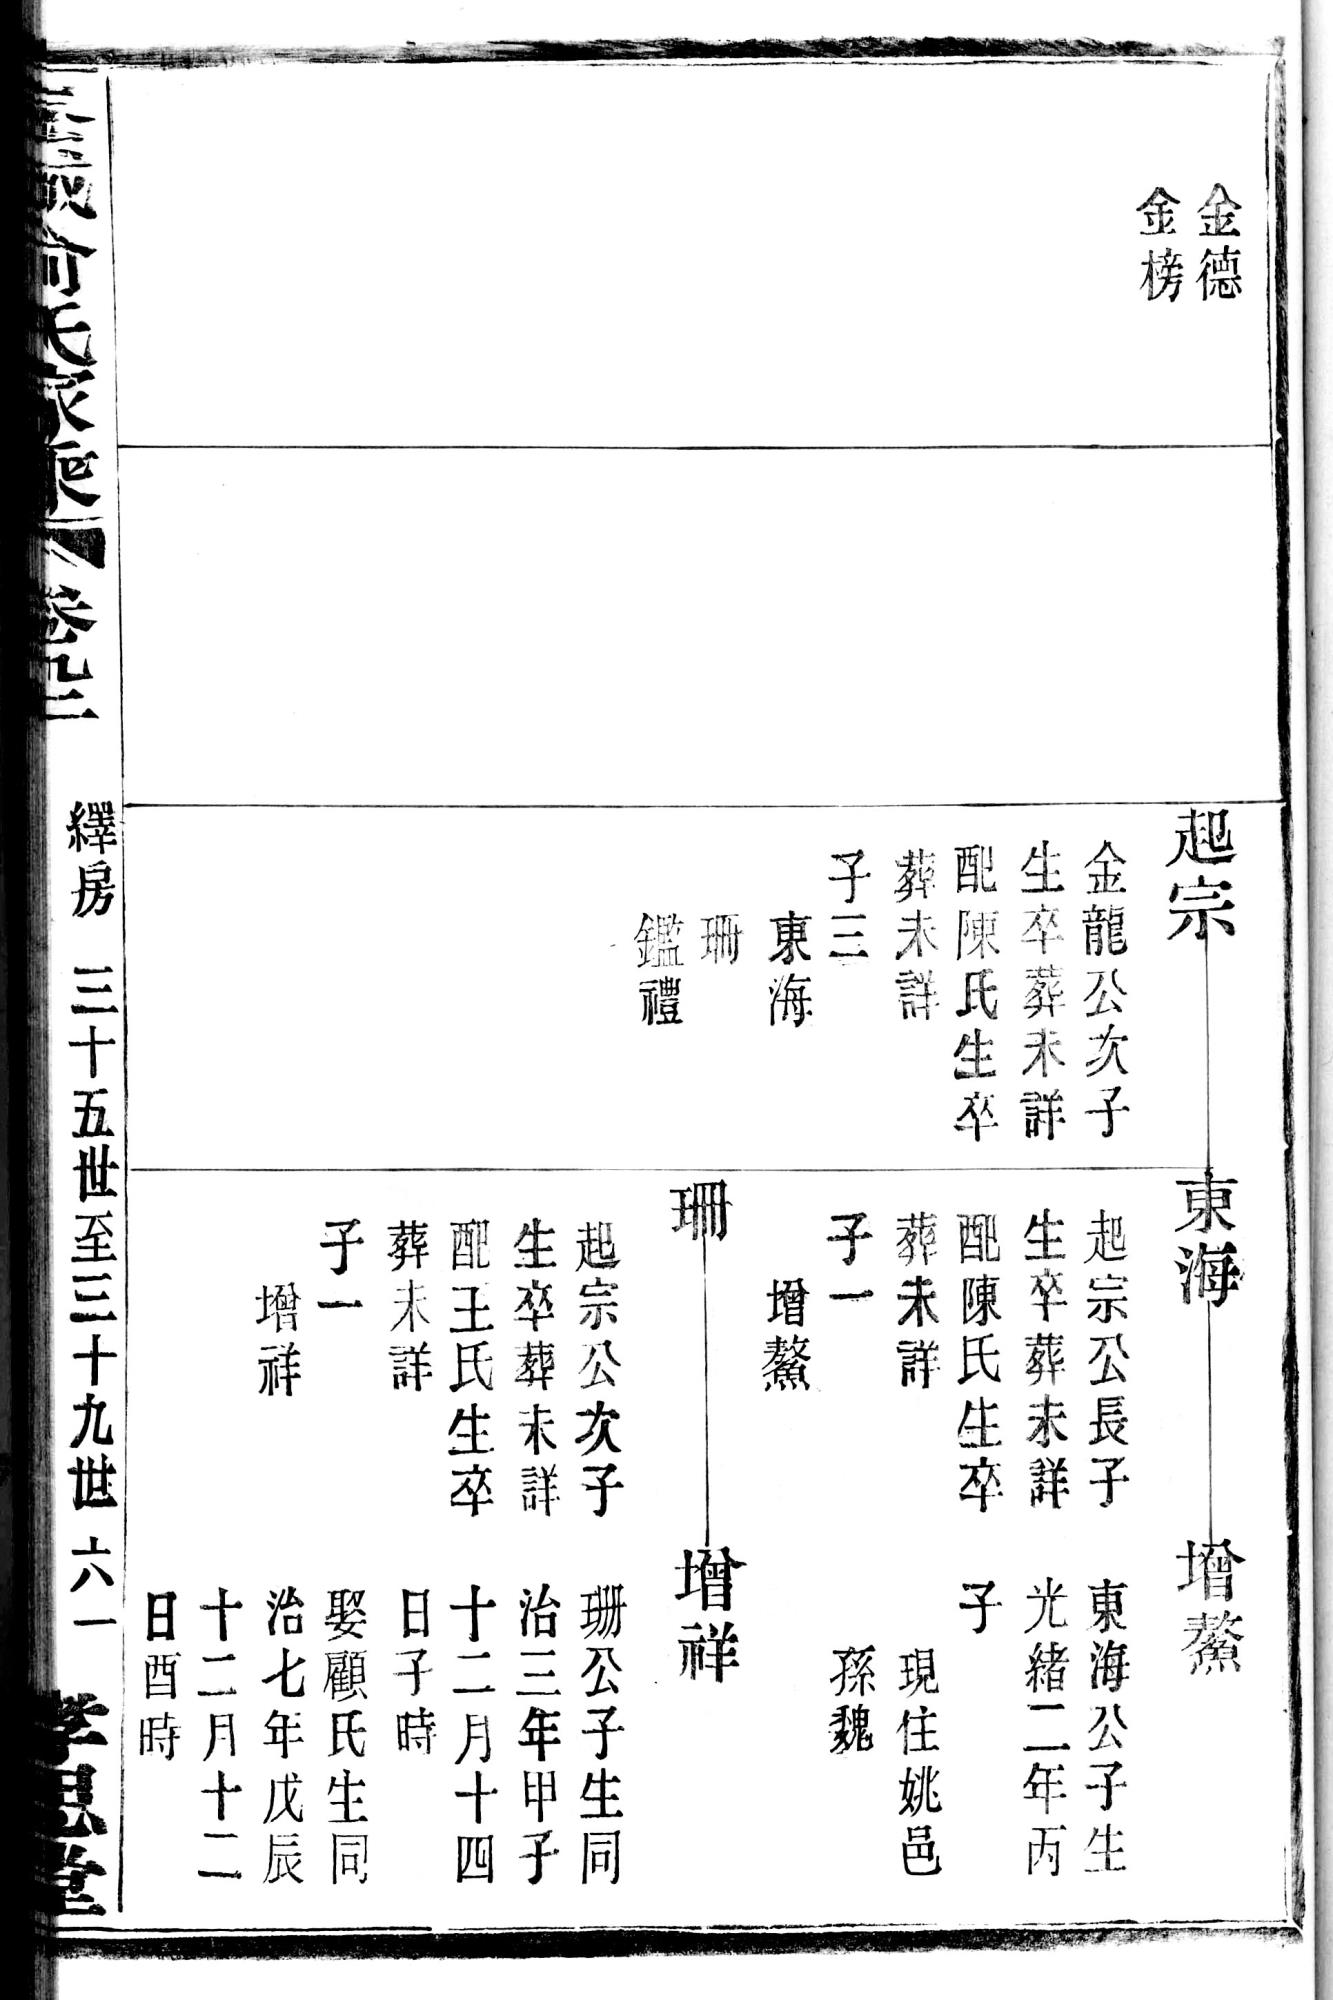 金德
金榜
起宗
金龍公次子
生卒葬未詳
配陳氏生卒
葬未詳
子三
東海
珊
鑑禮
東海
起宗公長子
生卒葬未詳
配陳氏生卒
葬未詳
子一
增鰲
珊
起宗公次子
生卒葬未詳
配王氏生卒
葬未詳
子一
增祥
增鰲
東海公子生
光緒二年丙
子
現住姚邑
孫魏
增祥
珊公子生同
治三年甲子
十二月十四
日子時
娶顧氏生同
治七年戊辰
十二月十二
日酉時
俞氏家乘 卷
繹房 三十五世至三十九世 六一
孝思堂